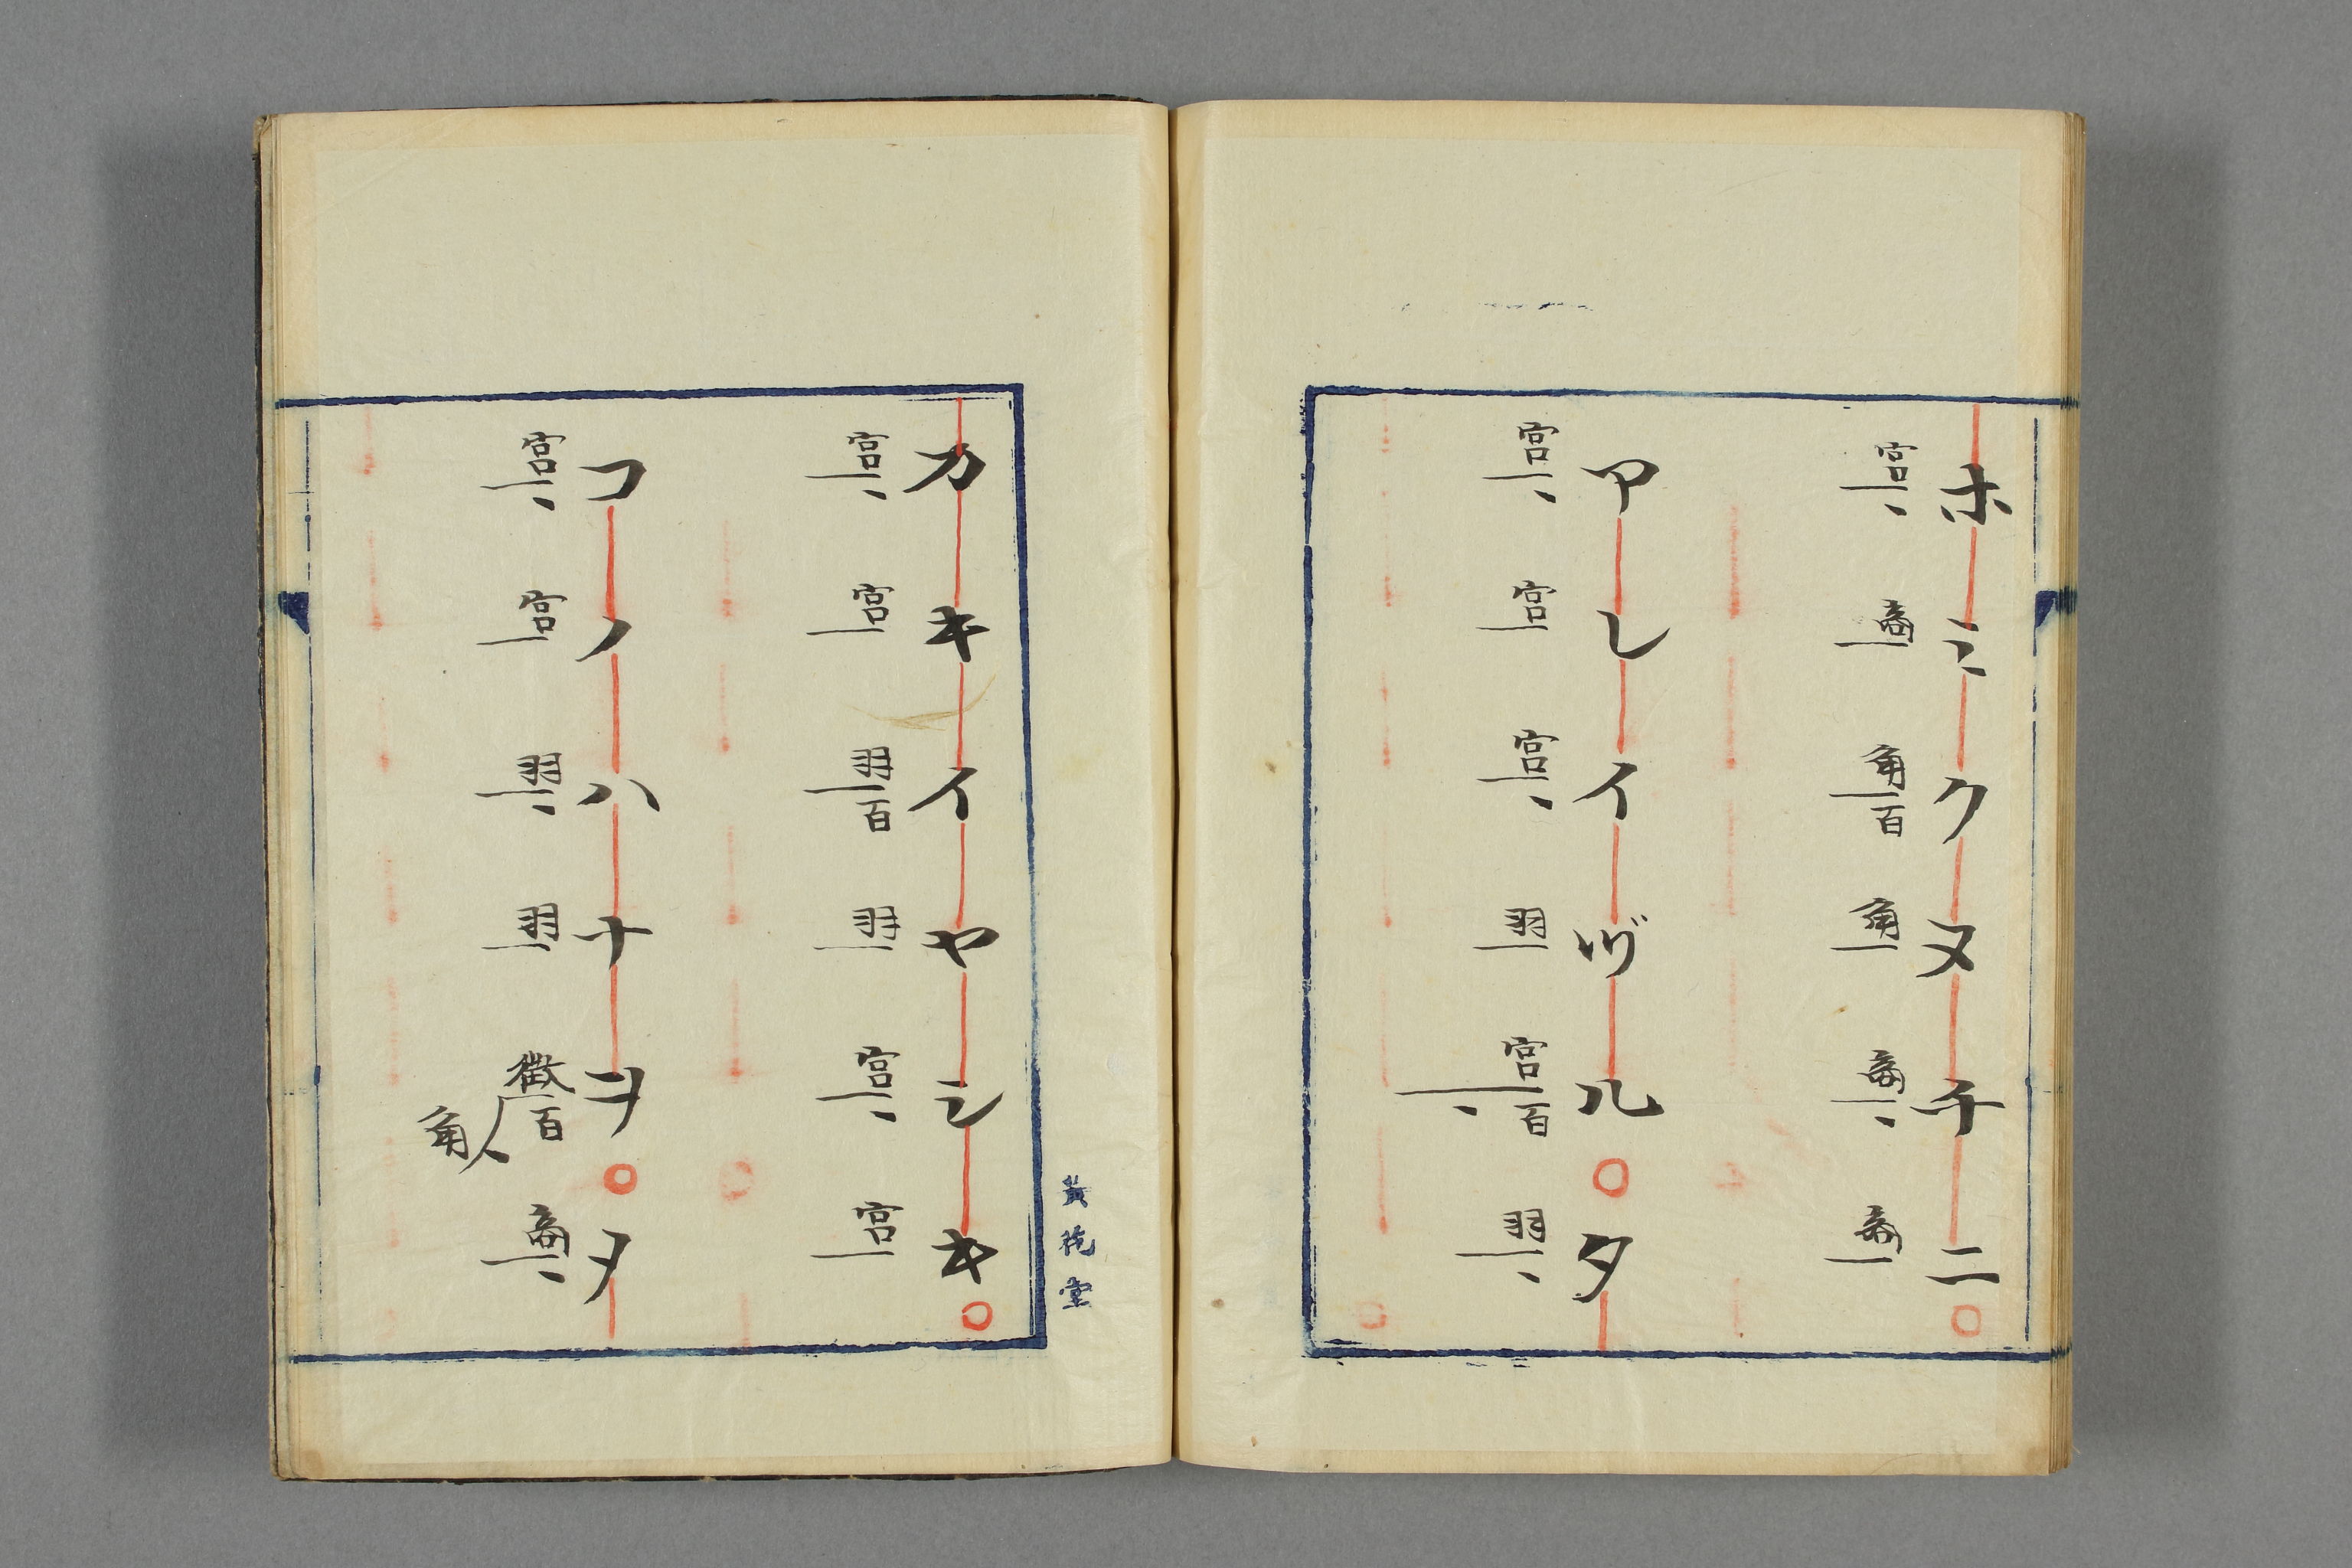 ホミクヌ子ニ〇
宮 商 角百 角 商 商
アレイヅル〇タ
宮 宮 宮 羽 宮百 羽
カキイヤシキ〇
宮 宮 羽百 羽 宮 宮
コノハナヲ〇タ
宮 宮 羽 羽 徴百角 商
黄花堂